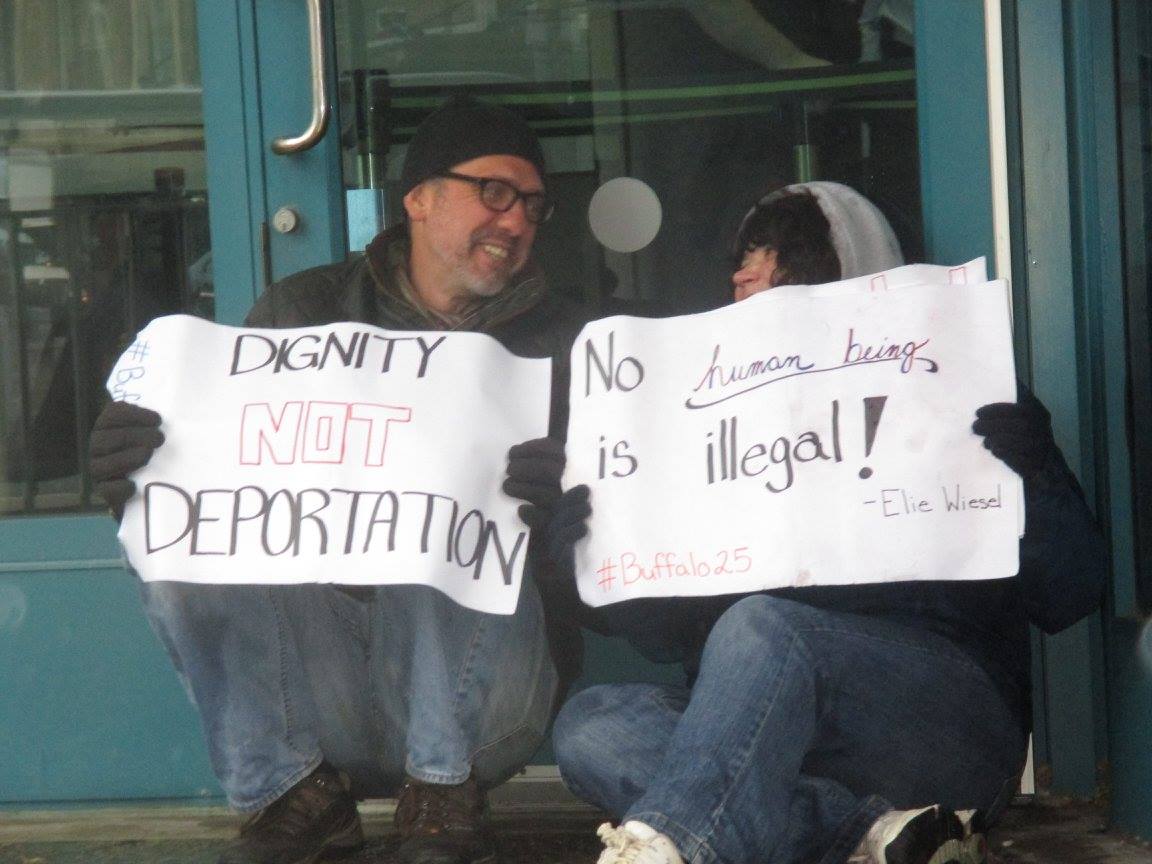 DIGNITY
NOT
DEPORTATION
No human being
is illegal!
-Elie Wiesel
#Buffalo25